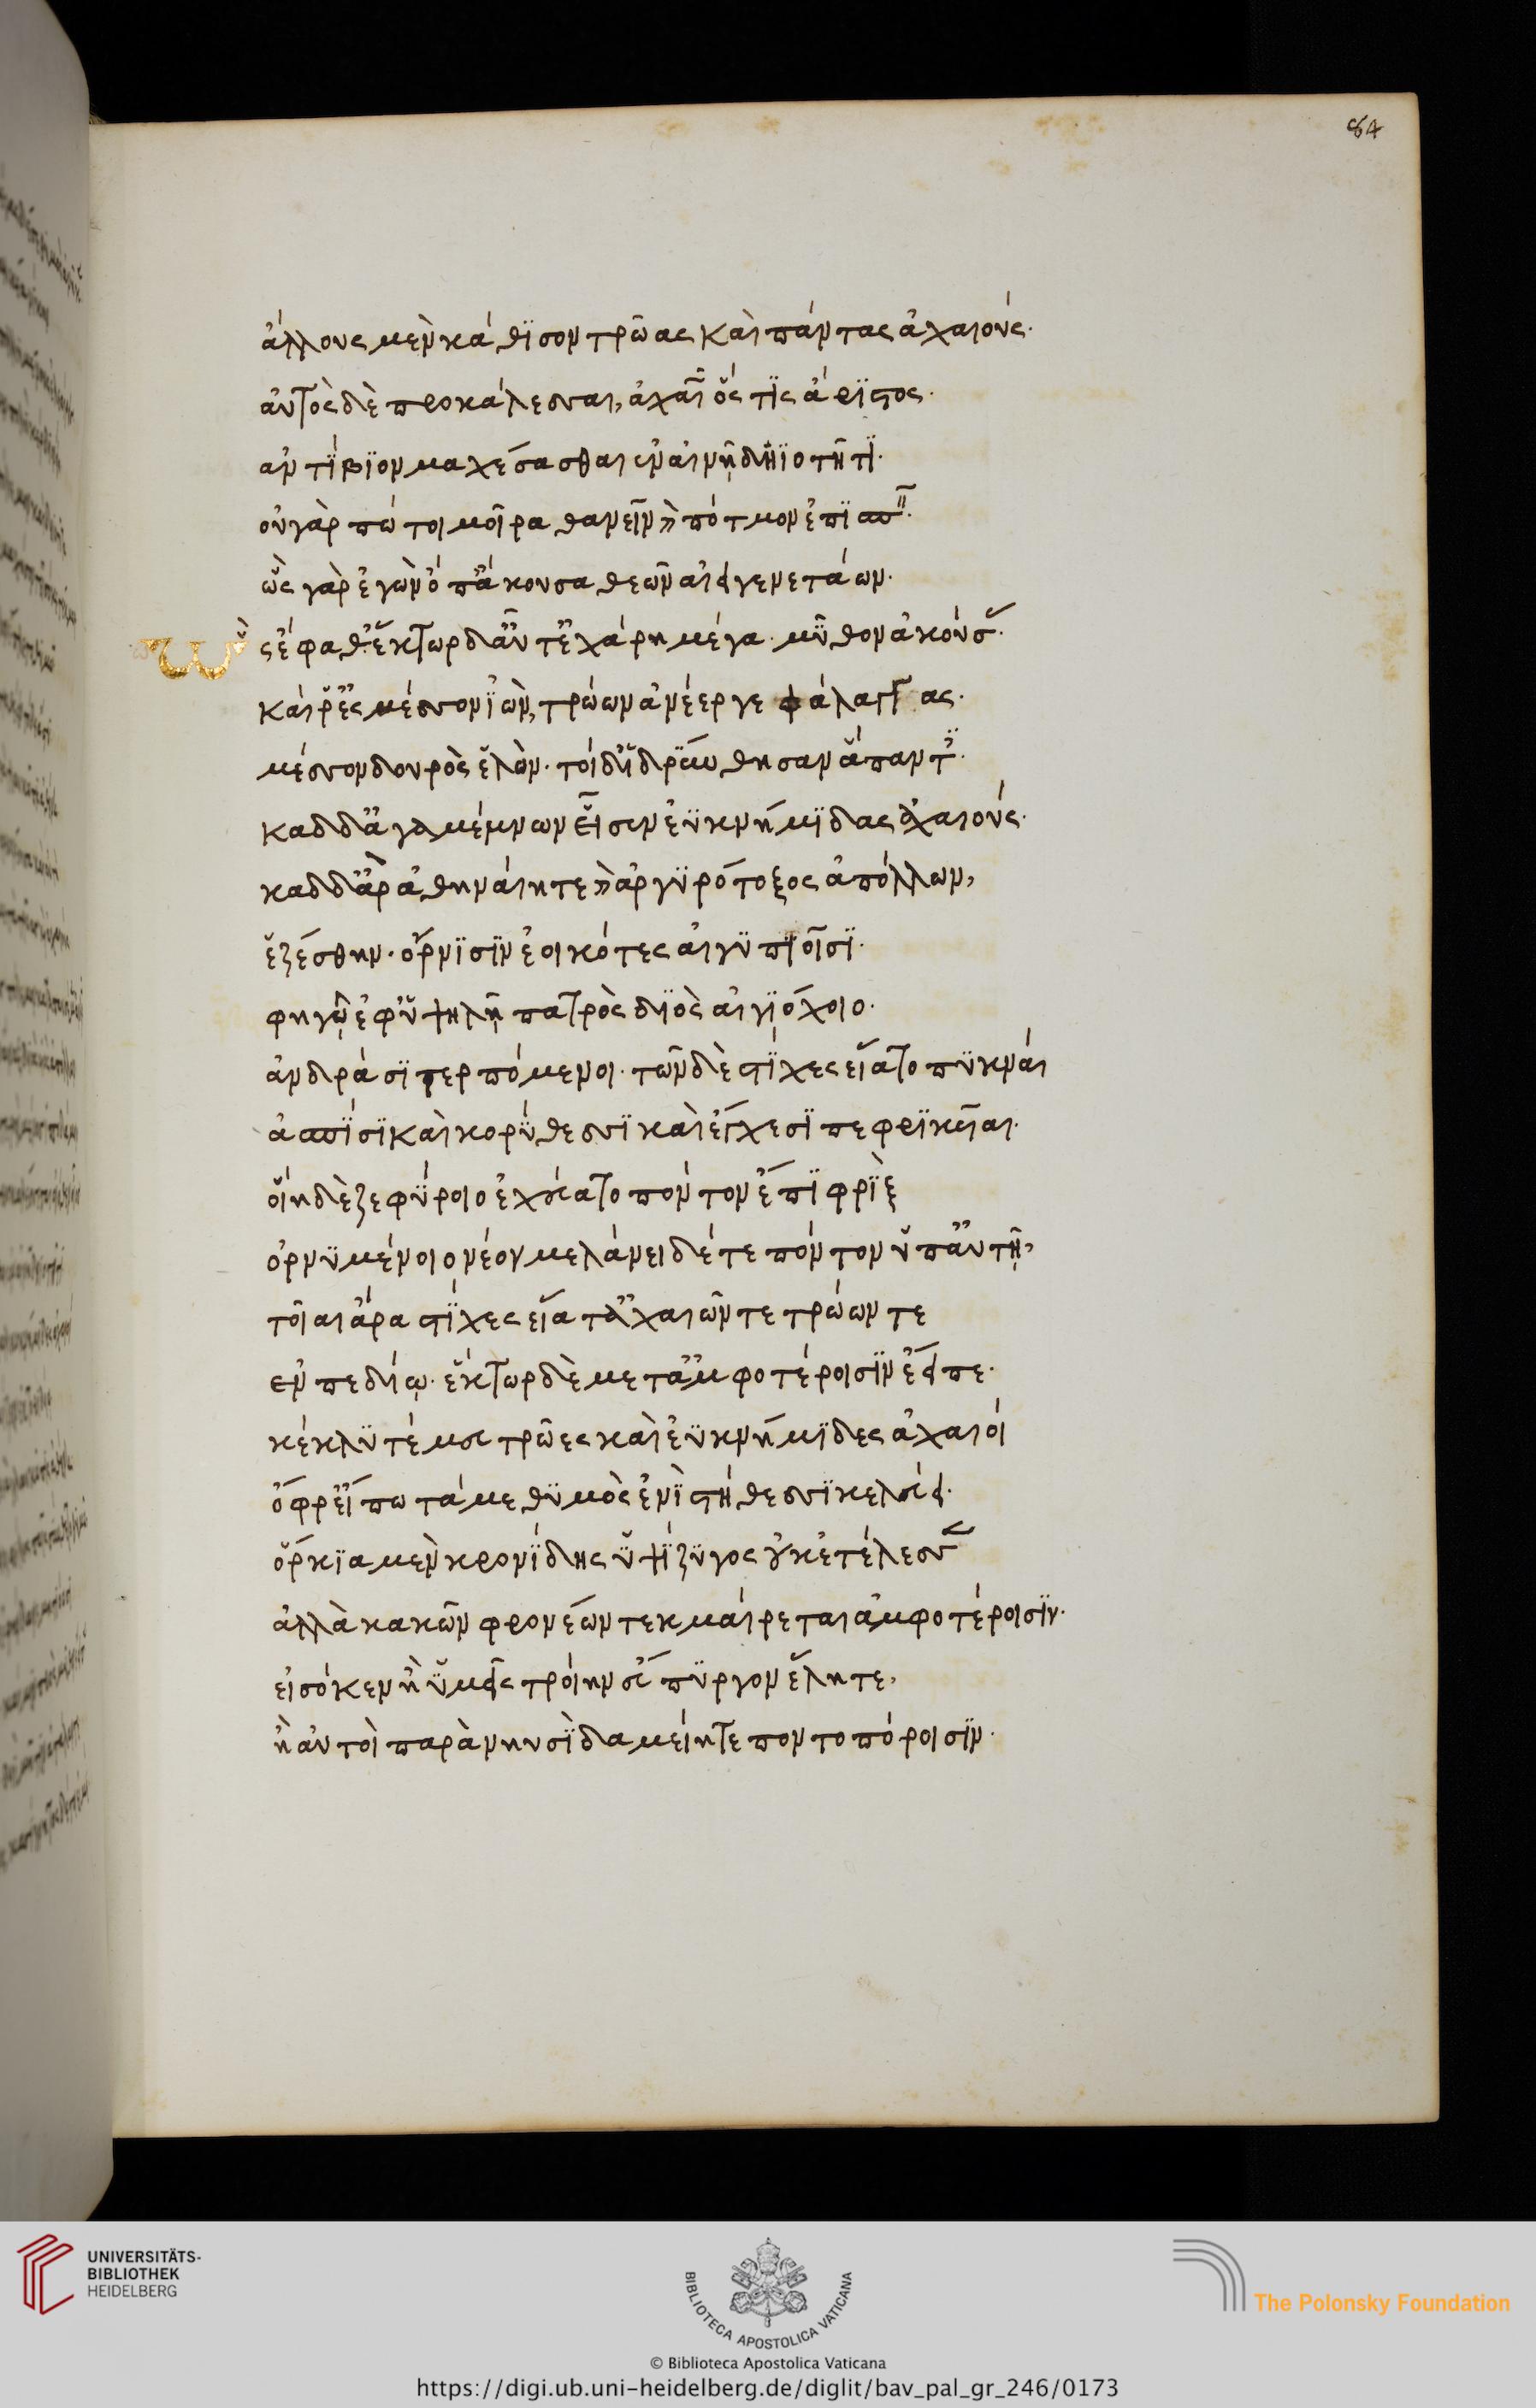 84
ἄλλους μὲν κάθισον τρῶας καὶ πάντας ἀχαιούς.
αὐτὸς δὲ προκάλεσσαι, ἀχαιῶν ὅς τις ἄριστος.
ἀντίβιον μαχέσασθαι ἐν αἰνῇ δηϊοτῆτι.
οὐ γάρ πώ τοι μοῖρα θανεῖν ἢ πότμον ἐπισπεῖν.
ὣς γὰρ ἐγὼν ὄπ' ἄκουσα θεῶν αἰειγενετάων.
ὣς ἔφαθ' ἕκτωρ δ' αὖτ' ἐχάρη μέγα. μῦθον ἀκούσας.
καί ῥ' ἐς μέσσον ἰὼν, τρώων ἀνέεργε φάλαγγας.
μέσσον δουρὸς ἑλὼν. τοὶ δ' ἱδρύνθησαν ἅπαντες.
καδδ' ἀγαμέμνων εἷσεν ἐϋκνήμιδας ἀχαιούς.
καδδ' ἄρ' ἀθηναίη τε ἢ ἀργυρότοξος ἀπόλλων,
ἑζέσθην. ὄρνισιν ἐοικότες αἰγυπιοῖσι.
φηγῷ ἐφ' ὑψηλῇ πατρὸς διὸς αἰγιόχοιο.
ἀνδράσι τερπόμενοι. τῶν δὲ στίχες εἵατο πυκναί
ἀσπίσι καὶ κορύθεσσι καὶ ἔγχεσι πεφρικυῖαι.
οἵη δὲ ζεφύροιο ἐχεύατο πόντον ἔπι φρὶξ
ὀρνυμένοιο νέον μελάνει δέ τε πόντον ὑπ' αὐτῇ,
τοῖαι ἄρα στίχες εἵατ' ἀχαιῶν τε τρώων τε
ἐν πεδίῳ. ἕκτωρ δὲ μετ' ἀμφοτέροισιν ἔειπε.
κέκλυτέ μευ τρῶες καὶ ἐϋκνήμιδες ἀχαιοί
ὄφρ' εἴπω τά με θυμὸς ἐνὶ στήθεσσι κελεύει.
ὅρκια μὲν κρονίδης ὑψίζυγος οὐκ ἐτέλεσσεν
ἀλλὰ κακῶν φρονέων τεκμαίρεται ἀμφοτέροισιν.
εἰσόκεν ἢ ὑμεῖς τροίην εὔπυργον ἕλητε,
ἢ αὐτοὶ παρὰ νηυσὶ δαμείητε ποντοπόροισιν.
UNIVERSITÄTS-
BIBLIOTHEK
HEIDELBERG
BIBLIOTECA APOSTOLICA VATICANA
The Polonsky Foundation
© Biblioteca Apostolica Vaticana
https://digi.ub.uni-heidelberg.de/diglit/bav_pal_gr_246/0173